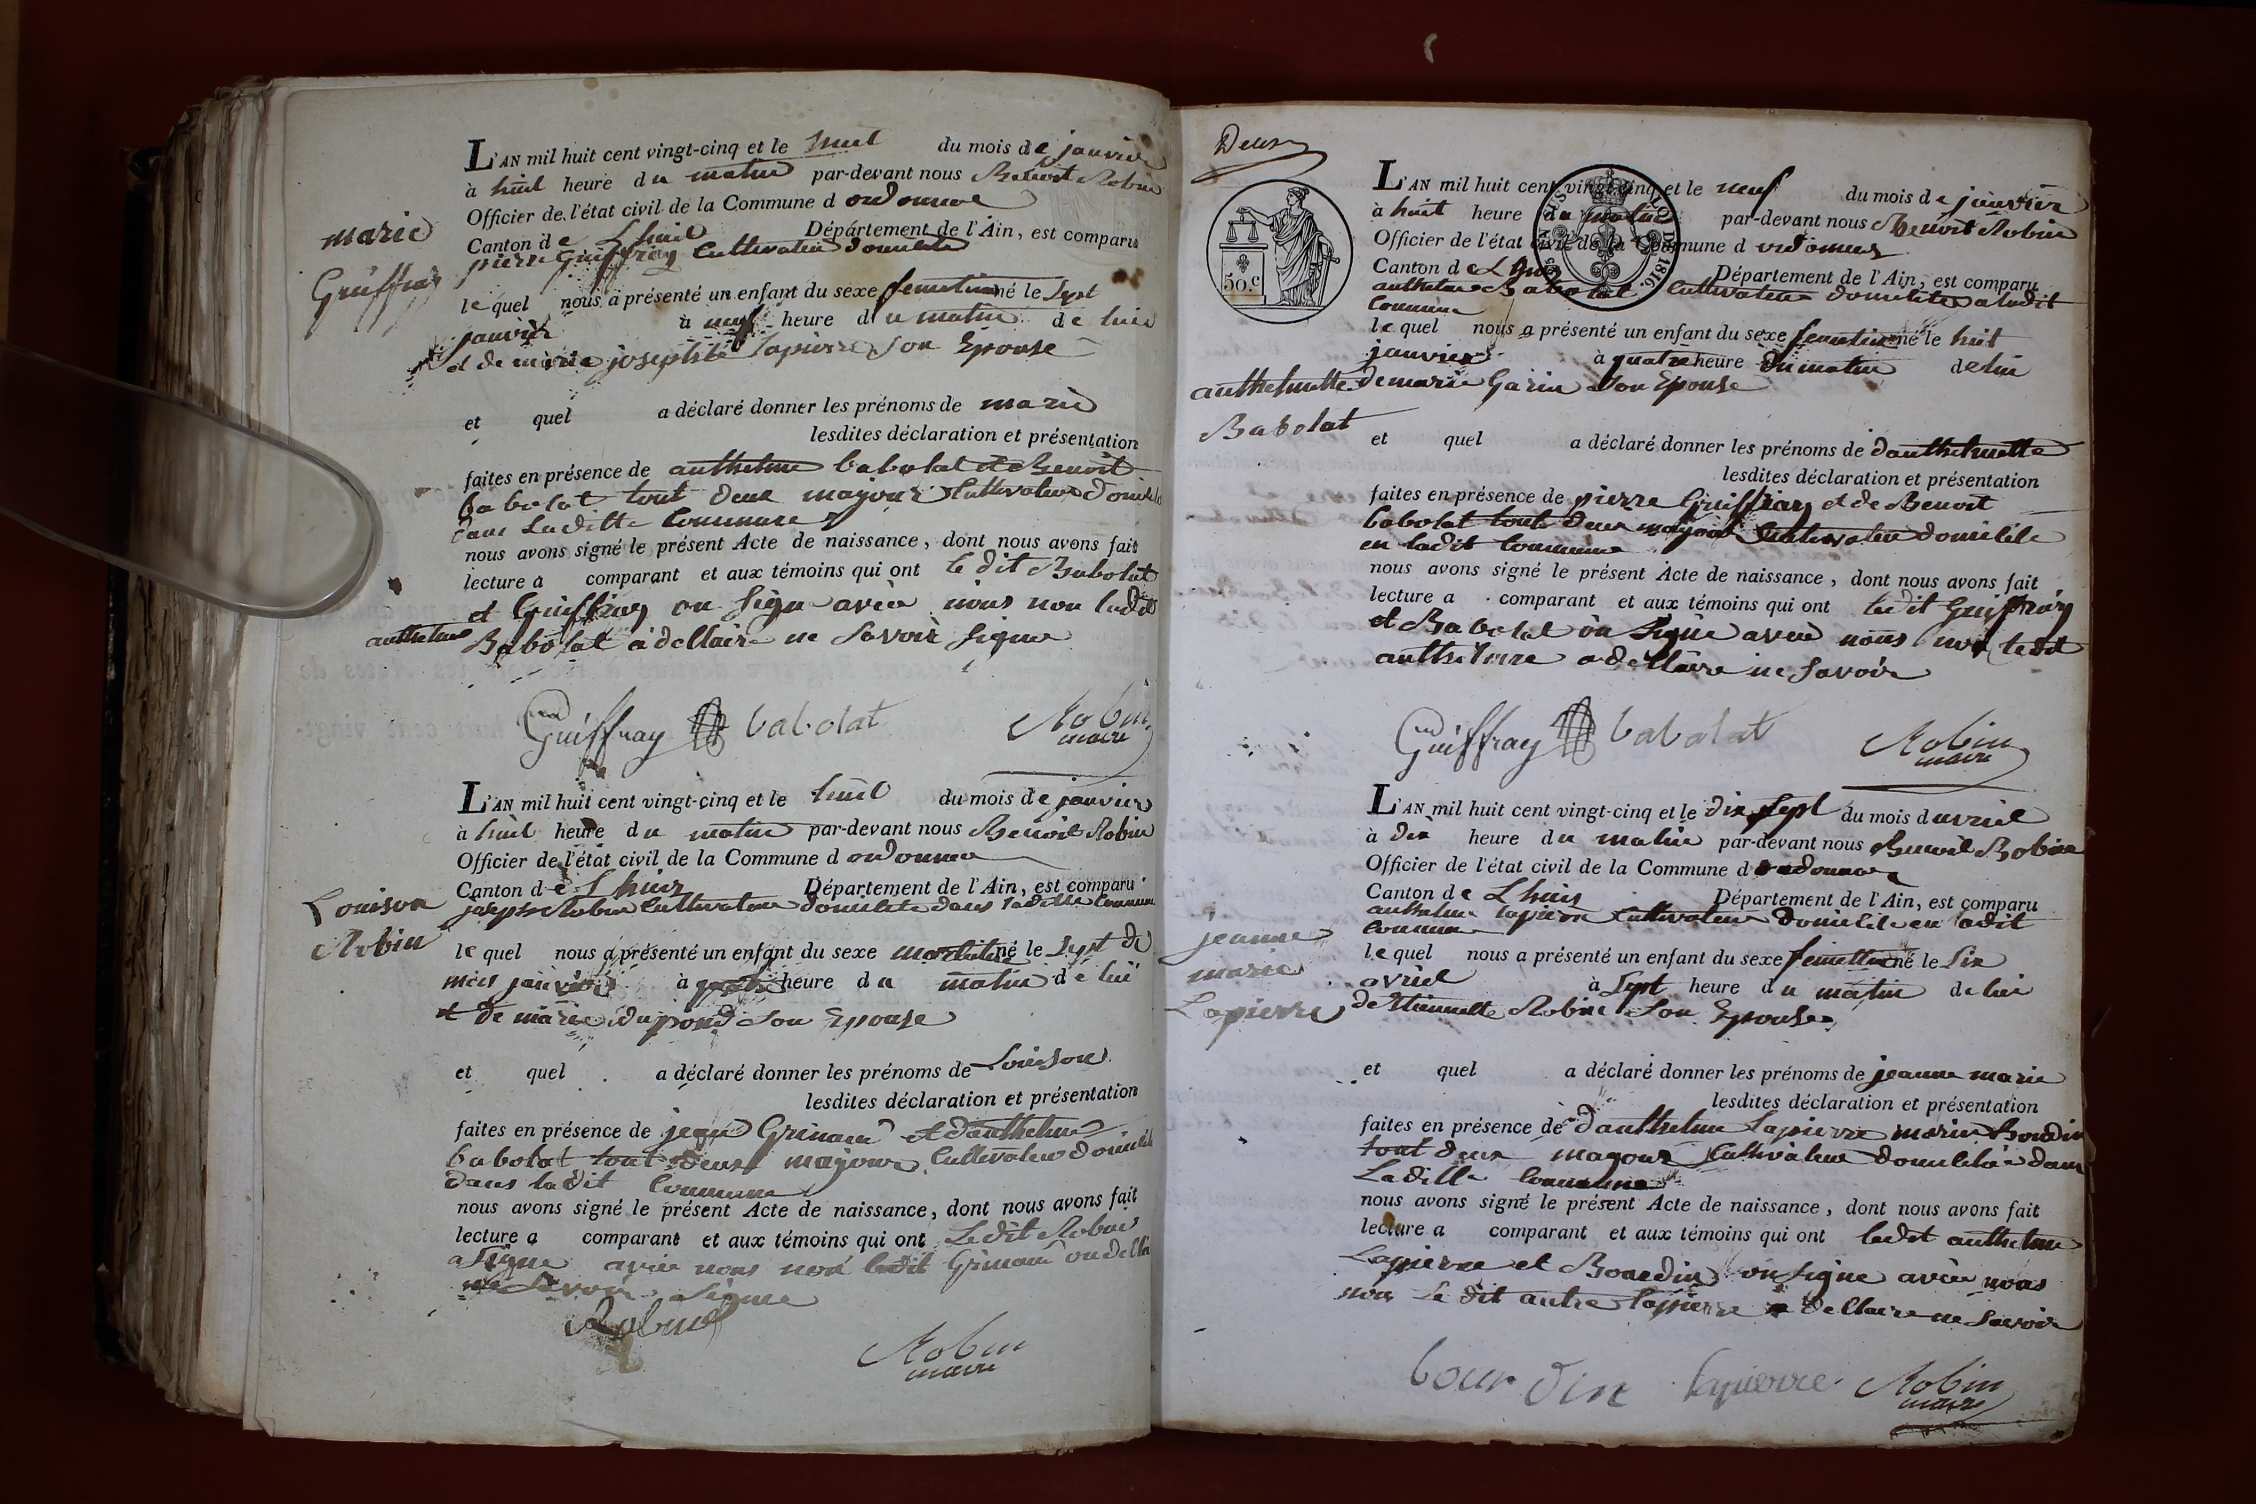 marie
Guiffray
L'AN mil huit cent vingt-cinq et le huit du mois de janvier
à huit heure du matin par-devant nous Benoit Robin
Officier de l'état civil de la Commune d ordonnas
Canton de Lhuis Département de l'Ain, est comparu
pierre Guiffray Cultivateur domicilié
le quel nous a présenté un enfant du sexe feminin né le sept
janvier à neuf heure du matin de lui
et de marie josephte Lapierre son Epouse
et quel a déclaré donner les prénoms de marie
lesdites déclaration et présentation
faites en présence de anthelme babolat et Benoit
babolat tout deux majour Cultivateur domicilé
dans Laditte Commune
nous avons signé le présent Acte de naissance, dont nous avons fait
lecture a comparant et aux témoins qui ont le dit Babolat
et Guiffray on signe avec nous non ledit
anthelme Babolat a dellaire ne savoir signe
Guiffray babolat Robin
maire
Louison
Robin
L'AN mil huit cent vingt-cinq et le huit du mois de janvier
à huit heure du matin par-devant nous Benoit Robin
Officier de l'état civil de la Commune d ordonnas
Canton de Lhuis Département de l'Ain, est comparu
joseph Robin Cultivateur domicilié dans laditte Commune
le quel nous a présenté un enfant du sexe né le sept de
mois janvier à quatre heure du matin de lui
et de marie dupond son Epouse
et quel a déclaré donner les prénoms de Louison
lesdites déclaration et présentation
faites en présence de jean Grinand et d'anthelme
babolat tout deux majour Cultivateur domicilé
dans ladit Commune
nous avons signé le présent Acte de naissance, dont nous avons fait
lecture a comparant et aux témoins qui ont Ledit Robin
a signe avec nous non ledit Grinand
ne savoir signe
Robin
Robin
maire
Deux
50.c
1816
L'AN mil huit cent vingt-cinq et le neuf du mois de janvier
à huit heure du matin par-devant nous Benoit Robin
Officier de l'état civil de la Commune d ordonnas
Canton de Lhuis Département de l'Ain, est comparu
anthelme Babolat Cultivateur domicilié a ladit
Commune
le quel nous a présenté un enfant du sexe feminin né le huit
janvier à quatre heure du matin de lui
anthelmette de marie Garin son Epouse
Babolat
et quel a déclaré donner les prénoms de danthelmette
lesdites déclaration et présentation
faites en présence de pierre Guiffray et de Benoit
babolat tout deux majour Cultivateur domicilé
en ladit Commune
nous avons signé le présent Acte de naissance, dont nous avons fait
lecture a comparant et aux témoins qui ont ledit Guiffray
et Babolat on signe avec nous non ledit
anthelme a dellaire ne savoir
Guiffray babolat Robin
maire
L'AN mil huit cent vingt-cinq et le dix sept du mois d avriel
à dix heure du matin par-devant nous Benoit Robin
Officier de l'état civil de la Commune d ordonnas
Canton de Lhuis Département de l'Ain, est comparu
anthelme lapierre Cultivateur domicilé en ladit
Commune
jeanne
marie
Lapierre
le quel nous a présenté un enfant du sexe né le six
avriel à sept heure du matin de lui
de Etiennette Robin son Epouse
et quel a déclaré donner les prénoms de jeanne marie
lesdites déclaration et présentation
faites en présence de d'anthelme Lapierre marin Bourdin
tout deux magour Cultivateur domicilié dans
Laditte Commune
nous avons signé le présent Acte de naissance, dont nous avons fait
lecture a comparant et aux témoins qui ont ledit anthelme
Lapierre et Bourdin on signe avec nous
non Le dit autre lapierre a dellaire ne savoir
bourdin lapierre Robin
maire